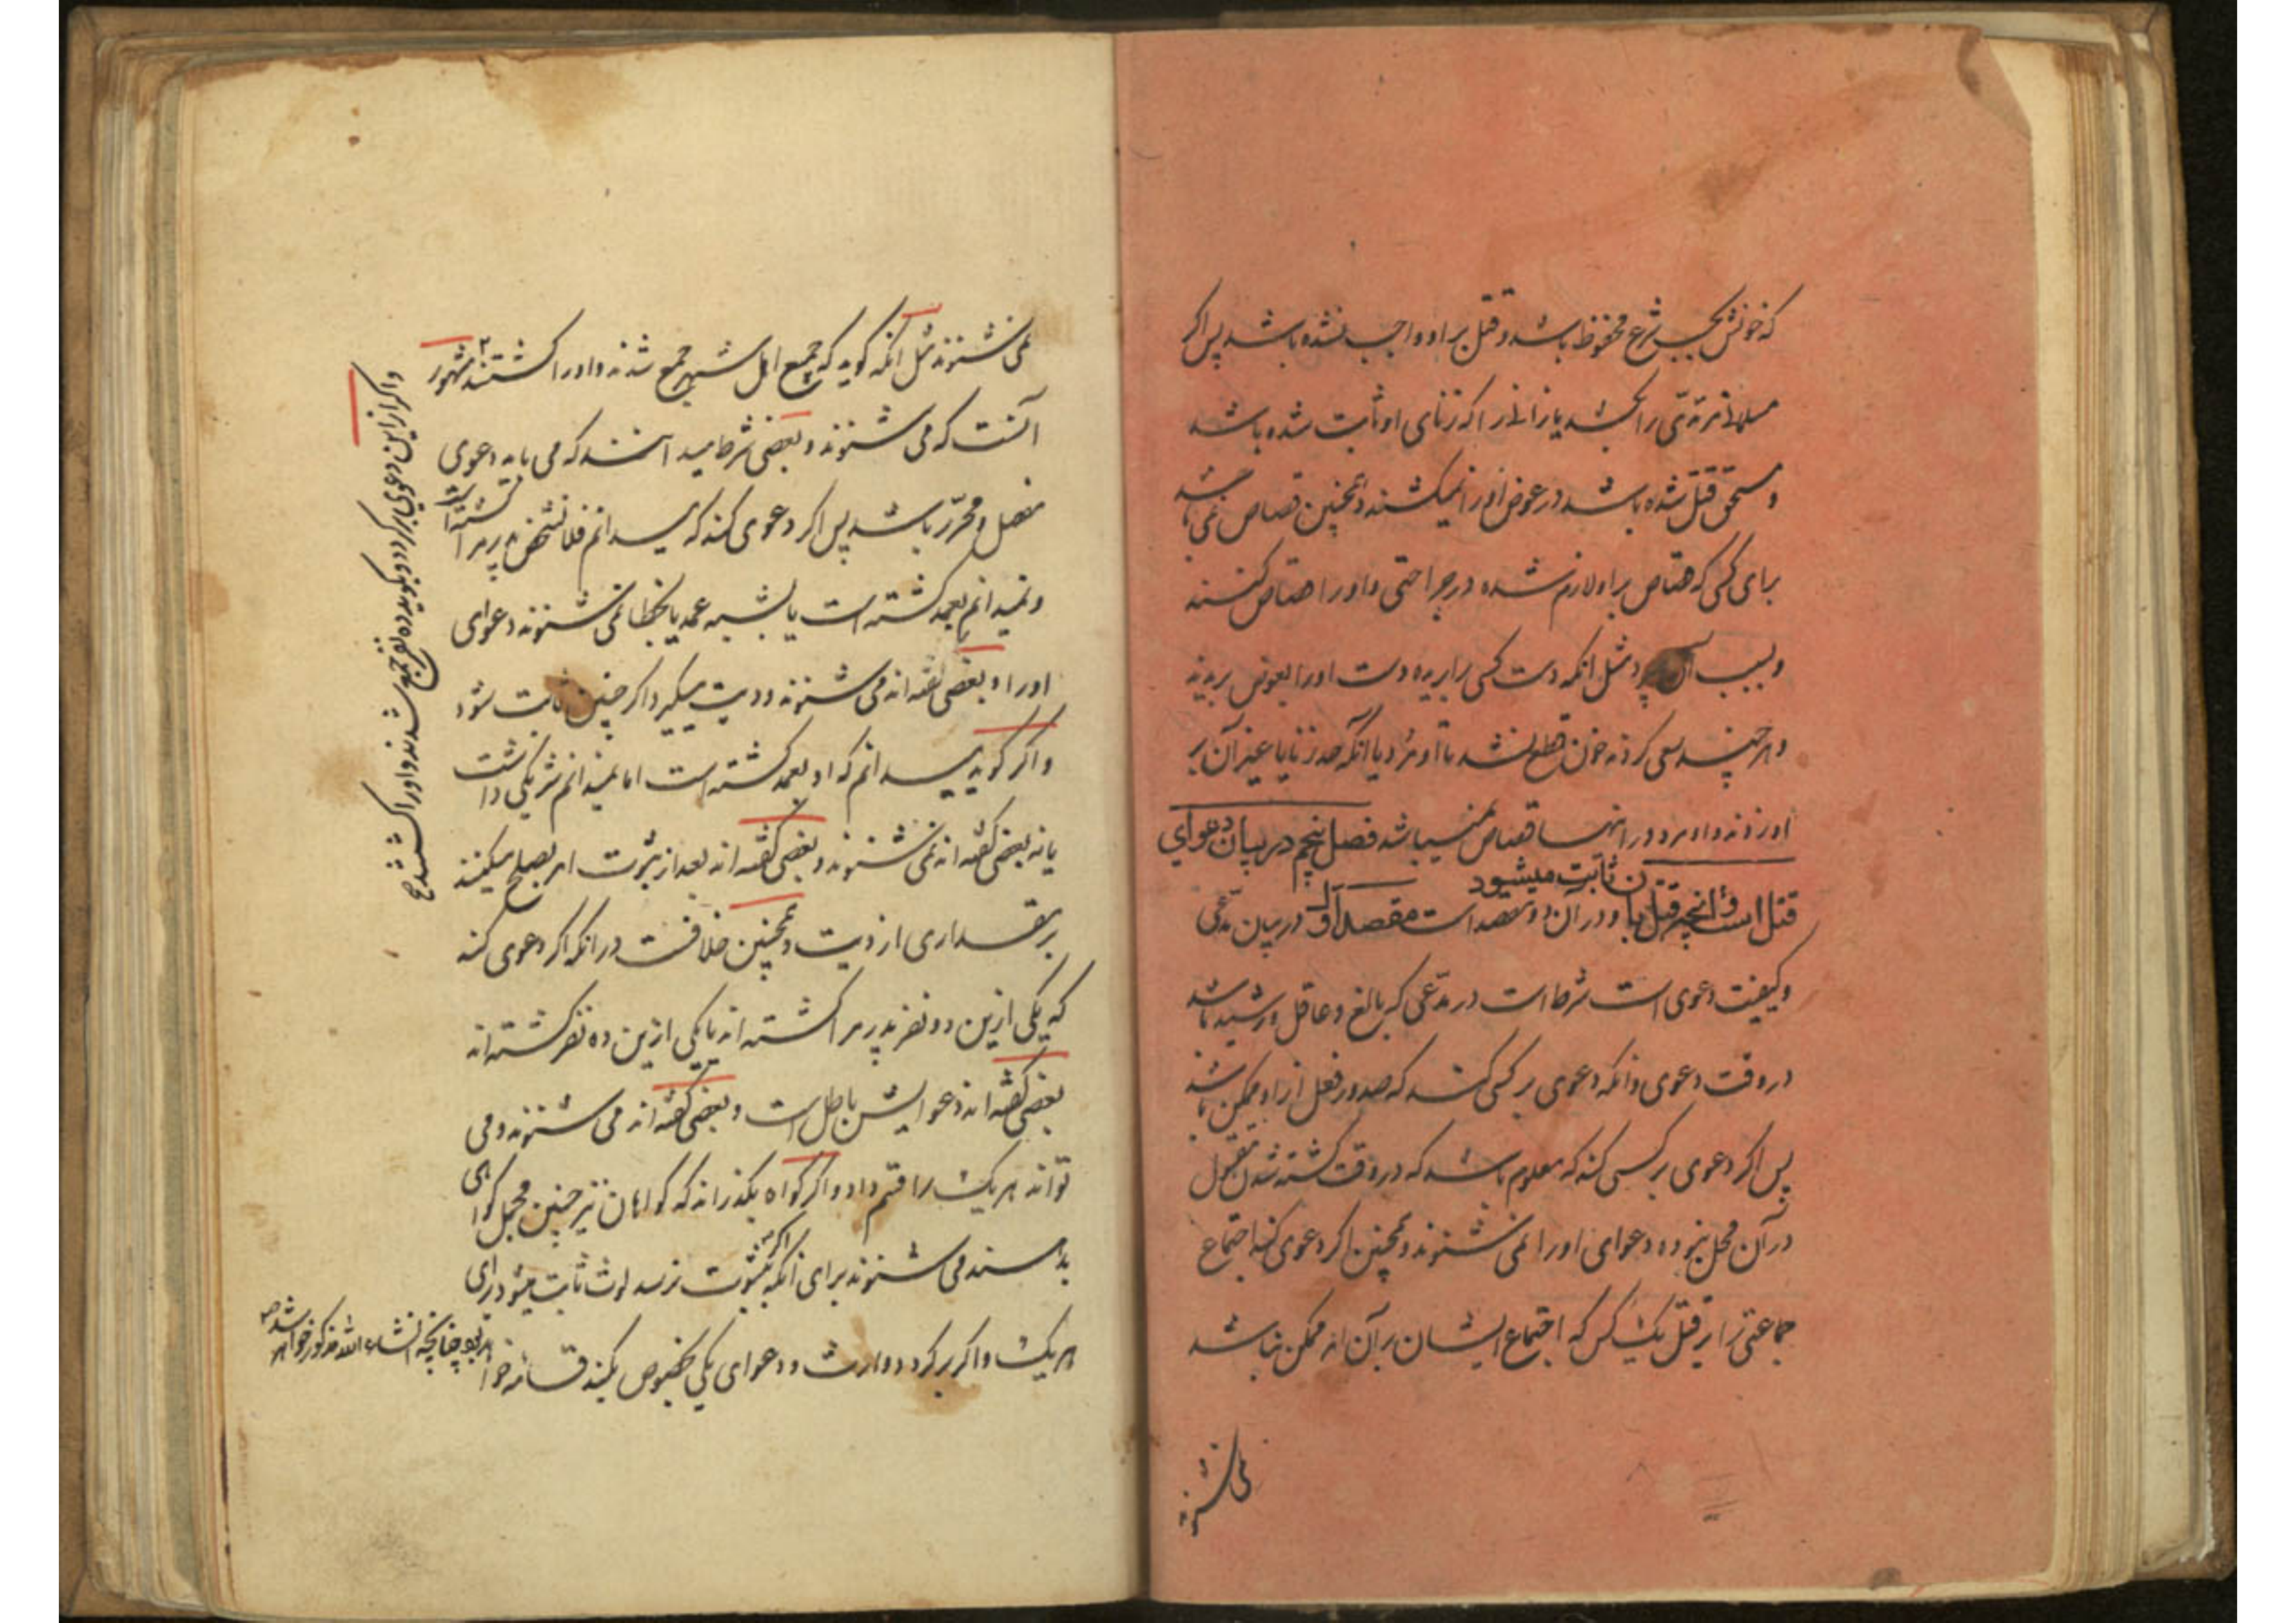 که خونش بحسب شرع محفوظ باشد و قتل بر او واجب نشده باشد پس اگر
مسلمانی مرتدّی را بکشد یا زانی را که زنای او ثابت شده باشد
و مستحق قتل شده باشد در عوض او را نمیکشند و همچنین قصاص نمی باشد
برای کسی که قصاص بر او لازم شده در جراحتی و او را قصاص کنند
و بسبب آن بمیرد مثل انکه دست کسی را بریده دست او را بعوض بریدند
و هر چند سعی کردند خون قطع نشد تا او مرد یا انکه حد زنا یا غیر آن بر
او زدند و او مرد در اینها قصاص نمیباشد فصل پنجم در بیان دعوای
قتل است و انچه قتل بان ثابت میشود و در آن دو مقصد است مقصد اول در بیان مدّعی
و کیفیت دعوی است شرط است در مدّعی که بالغ و عاقل و رشید باشد
در وقت دعوی و انکه دعوی بر کسی کند که صدور فعل از او ممکن باشد
پس اگر دعوی بر کسی کند که معلوم باشد که در وقت کشته شدن مقتول
در آن محل نبوده دعوای او را نمی شنوند و همچنین اگر دعوی کند اجتماع
جماعتی را بر قتل یک کس که اجتماع ایشان بر آن امر ممکن نباشد
نمی شنوند
نمی شنوند مثل انکه گوید که جمیع اهل شهر جمع شدند و او را کشتند
و اگر از این دعوی برگردد و بگوید ده نفر جمع شدند و او را کشتند صح
مشهور
آنست که می شنوند و بعضی شرط میدانند که می باید دعوی
مفصل و محرّر باشد پس اگر دعوی کند که میدانم فلان شخص پدر مرا کشته است
و نمیدانم بعمد کشته است یا بشبیه عمد یا بخطا نمی شنوند دعوای
او را و بعضی گفته اند می شنوند و دیت میگیرد اگر چنین ثابت شود
و اگر گوید میدانم که او بعمد کشته است اما نمیدانم شریکی داشت
یا نه بعضی گفته اند نمی شنوند و بعضی گفته اند بعد از ثبوت امر بصلح میکنند
بر مقداری از دیت و همچنین خلافست در انکه اگر دعوی کند
که یکی ازین دو نفر پدر مرا کشته اند یا یکی ازین ده نفر کشته اند
بعضی گفته اند دعوایش باطل است و بعضی گفته اند می شنوند و می
تواند هر یک را قسم داد و اگر گواه بگذراند که گواهان نیز چنین مجمل گواهی
بدهند می شنوند برای انکه اگر بثبوت نرسد لوث ثابت میشود برای
هر یک و اگر برگردد وارث و دعوای یکی بخصوص بکند قسامه خواهد بود چنانچه انشاء الله مذکور خواهد شد صح